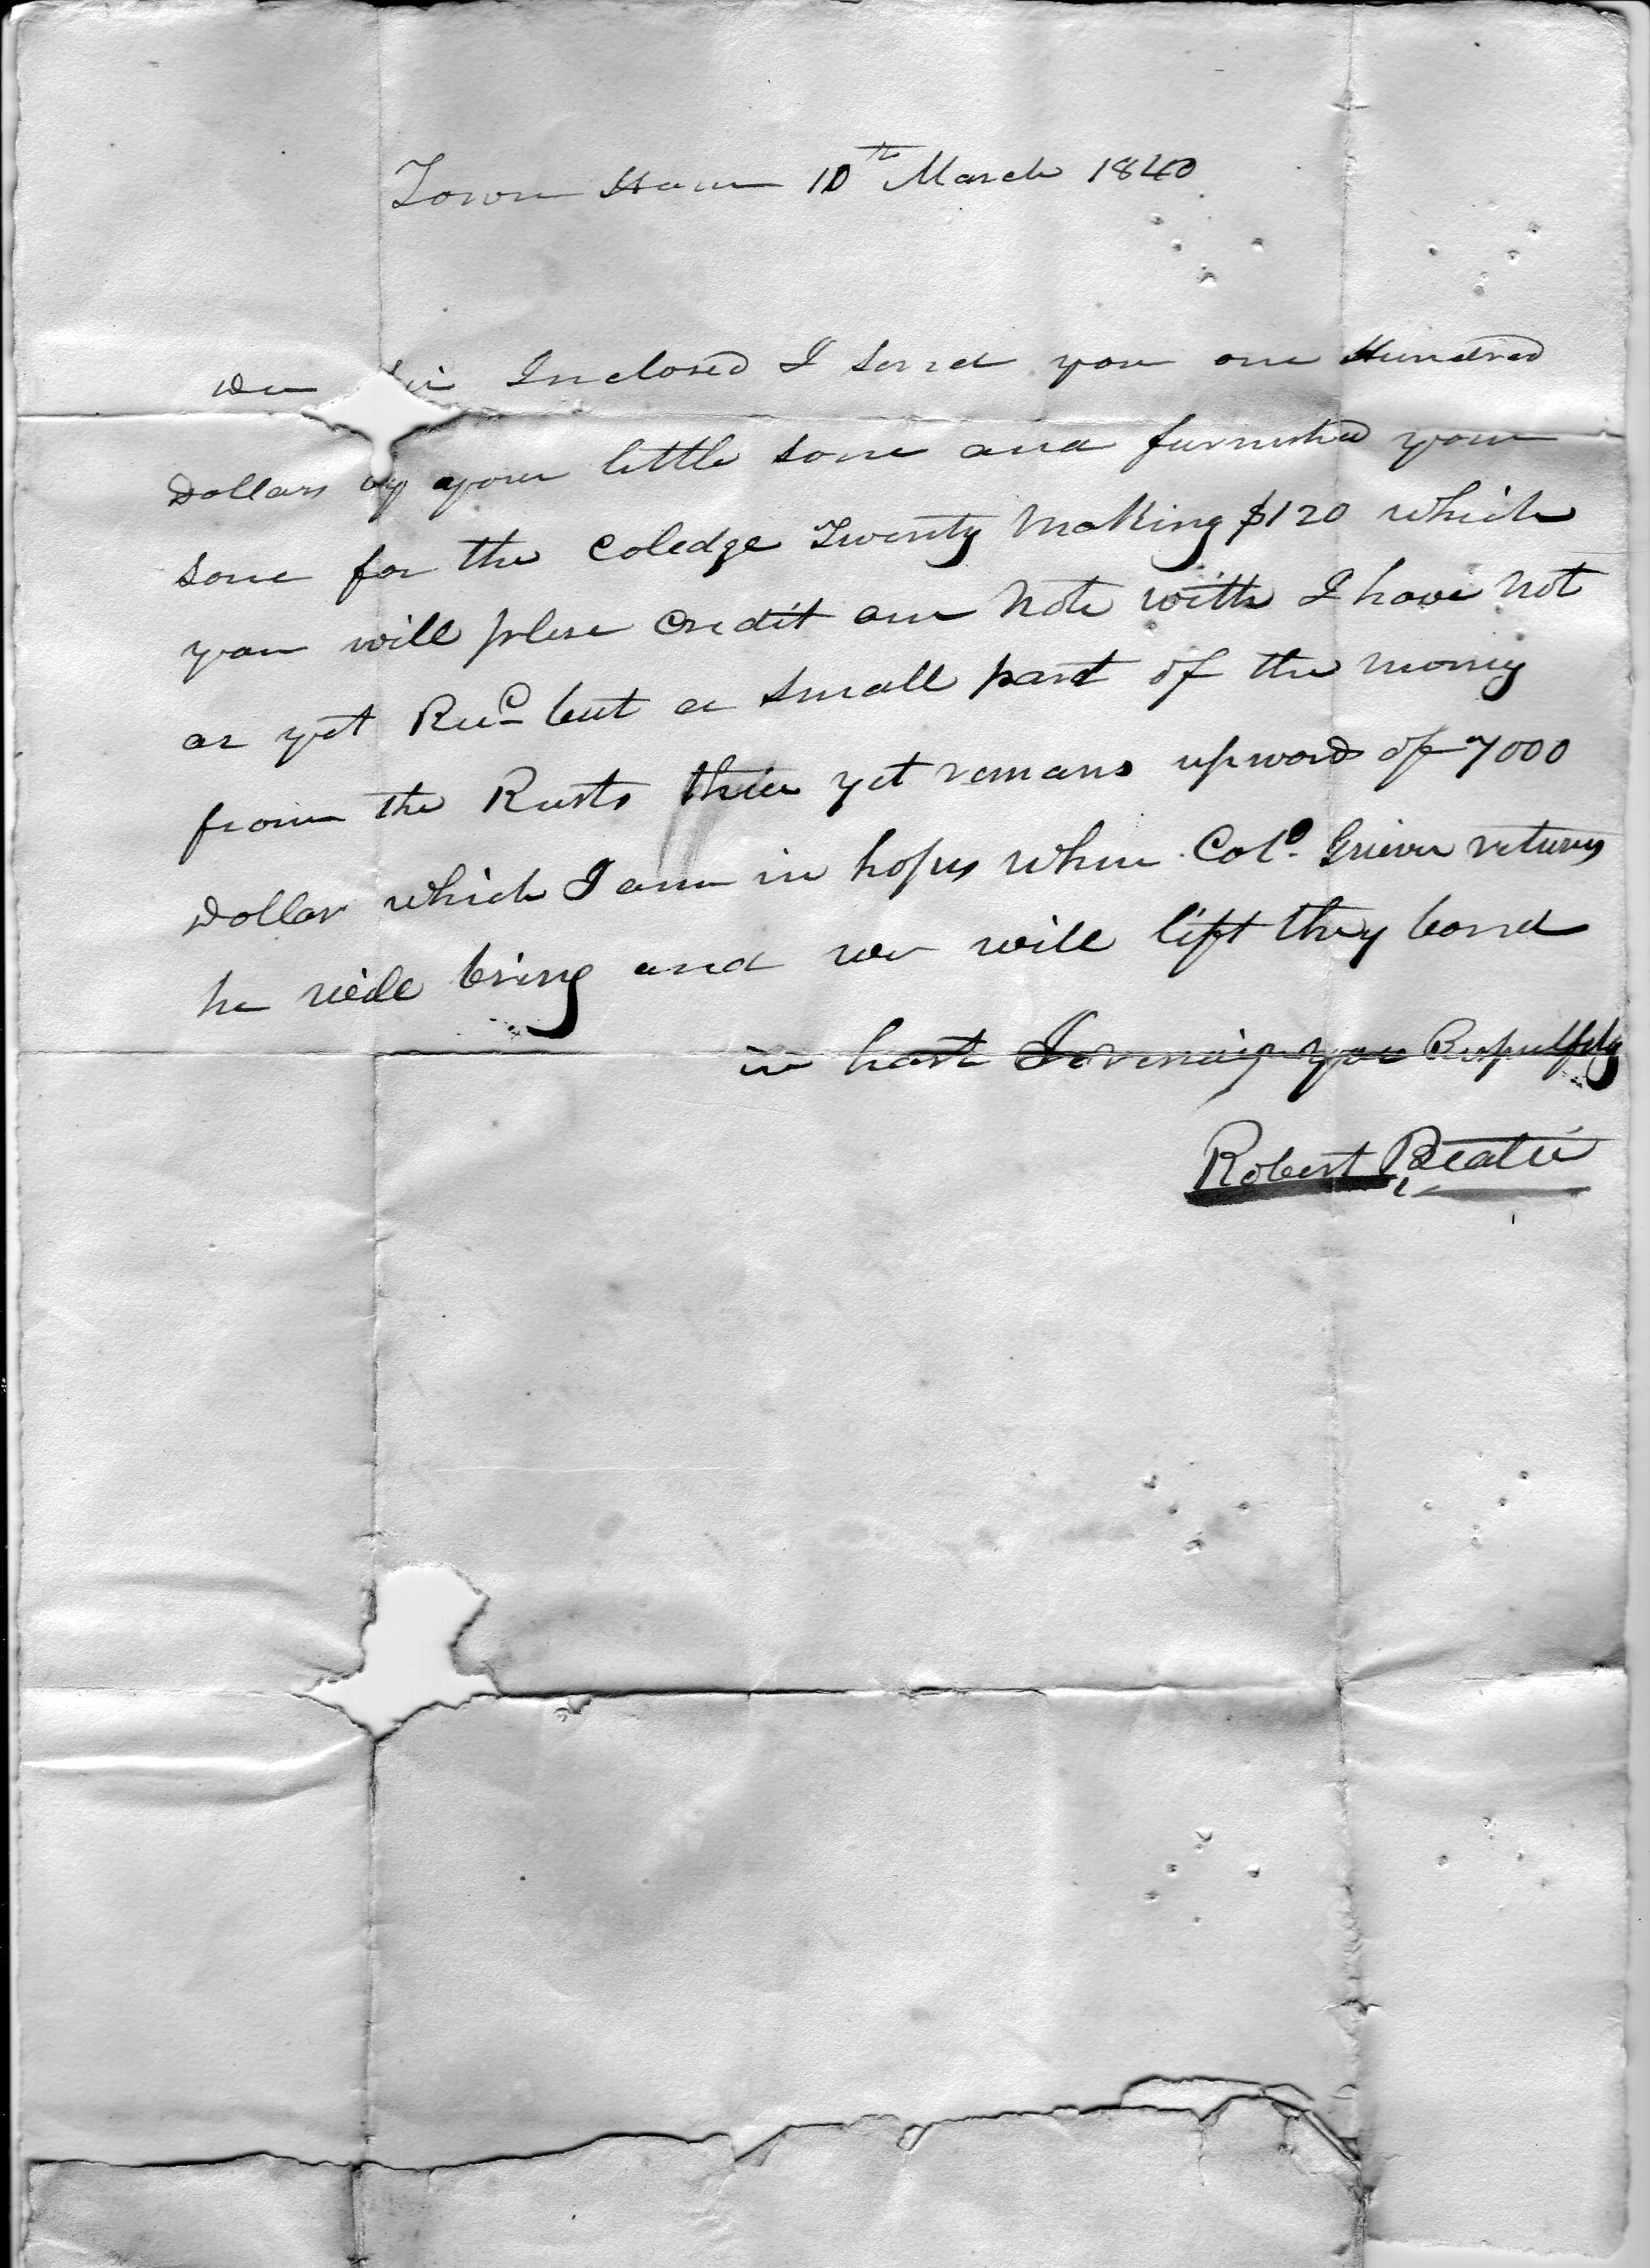 Town House 10th March 1840
Dear Sir Inclosed I send you one Hundred
Dollars by your little sone and furnished your
sone for the Coledge Twenty Making $120 which
you will plese Credit our Note with I have Not
as yet Recd but a small part of the money
from the Rusts thire yet remans upword of 7000
Dollar which I am in hopes when Colo. Greever returns
he will bring and we will lift they bond
in hast I remain your Respectfuly
Robert Beatie